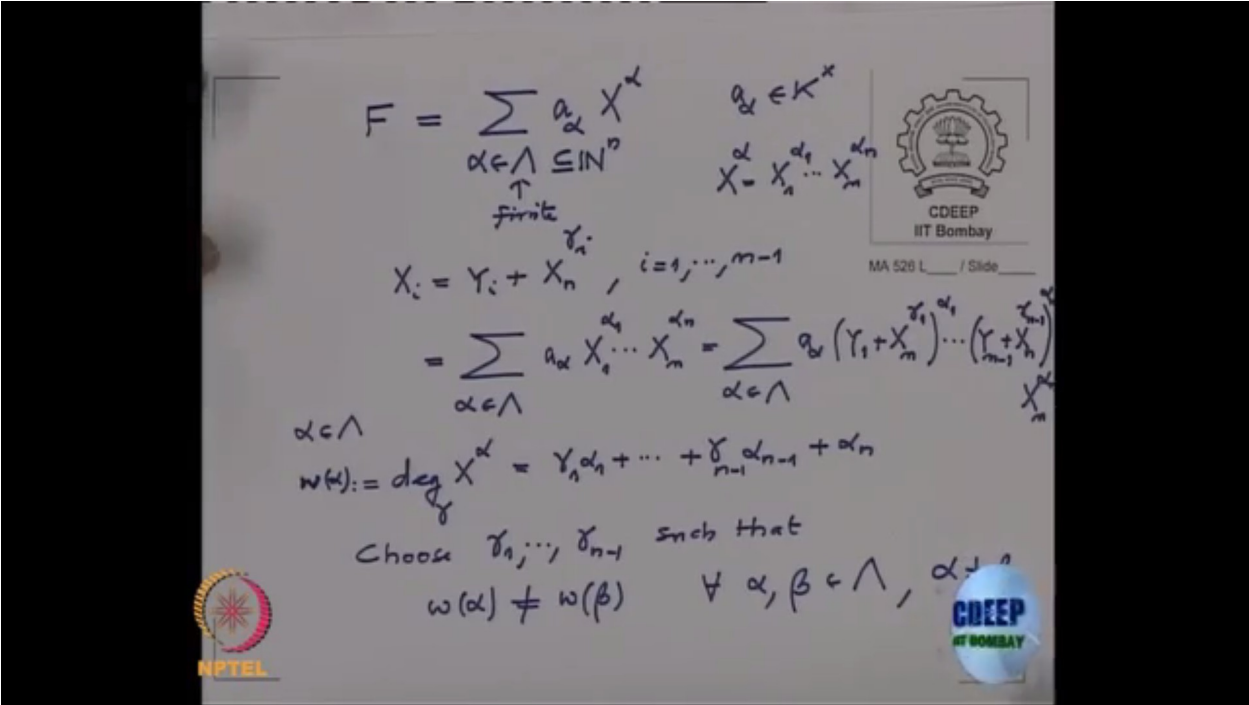 F = ∑ a_α X^α    a_α ∈ K^×
α∈Λ ⊆ ℕ^n    X^α = X_1^{α_1} ⋯ X_n^{α_n}
↑
finite
CDEEP
IIT Bombay
MA 526 L____ / Slide_____
X_i = Y_i + X_n^{γ_i} , i=1,⋯,n-1
= ∑ a_α X_1^{α_1} ⋯ X_n^{α_n} = ∑ a_α (Y_1 + X_n^{γ_1})^{α_1} ⋯ (Y_{n-1} + X_n^{γ_{n-1}})^α
α∈Λ    α∈Λ    X_n^α
α∈Λ
w(α) := deg_γ X^α = γ_1α_1 + ⋯ + γ_{n-1}α_{n-1} + α_n
Choose γ_1,⋯,γ_{n-1} such that
w(α) ≠ w(β)    ∀ α, β ∈ Λ , α ≠
CDEEP
IIT BOMBAY
NPTEL